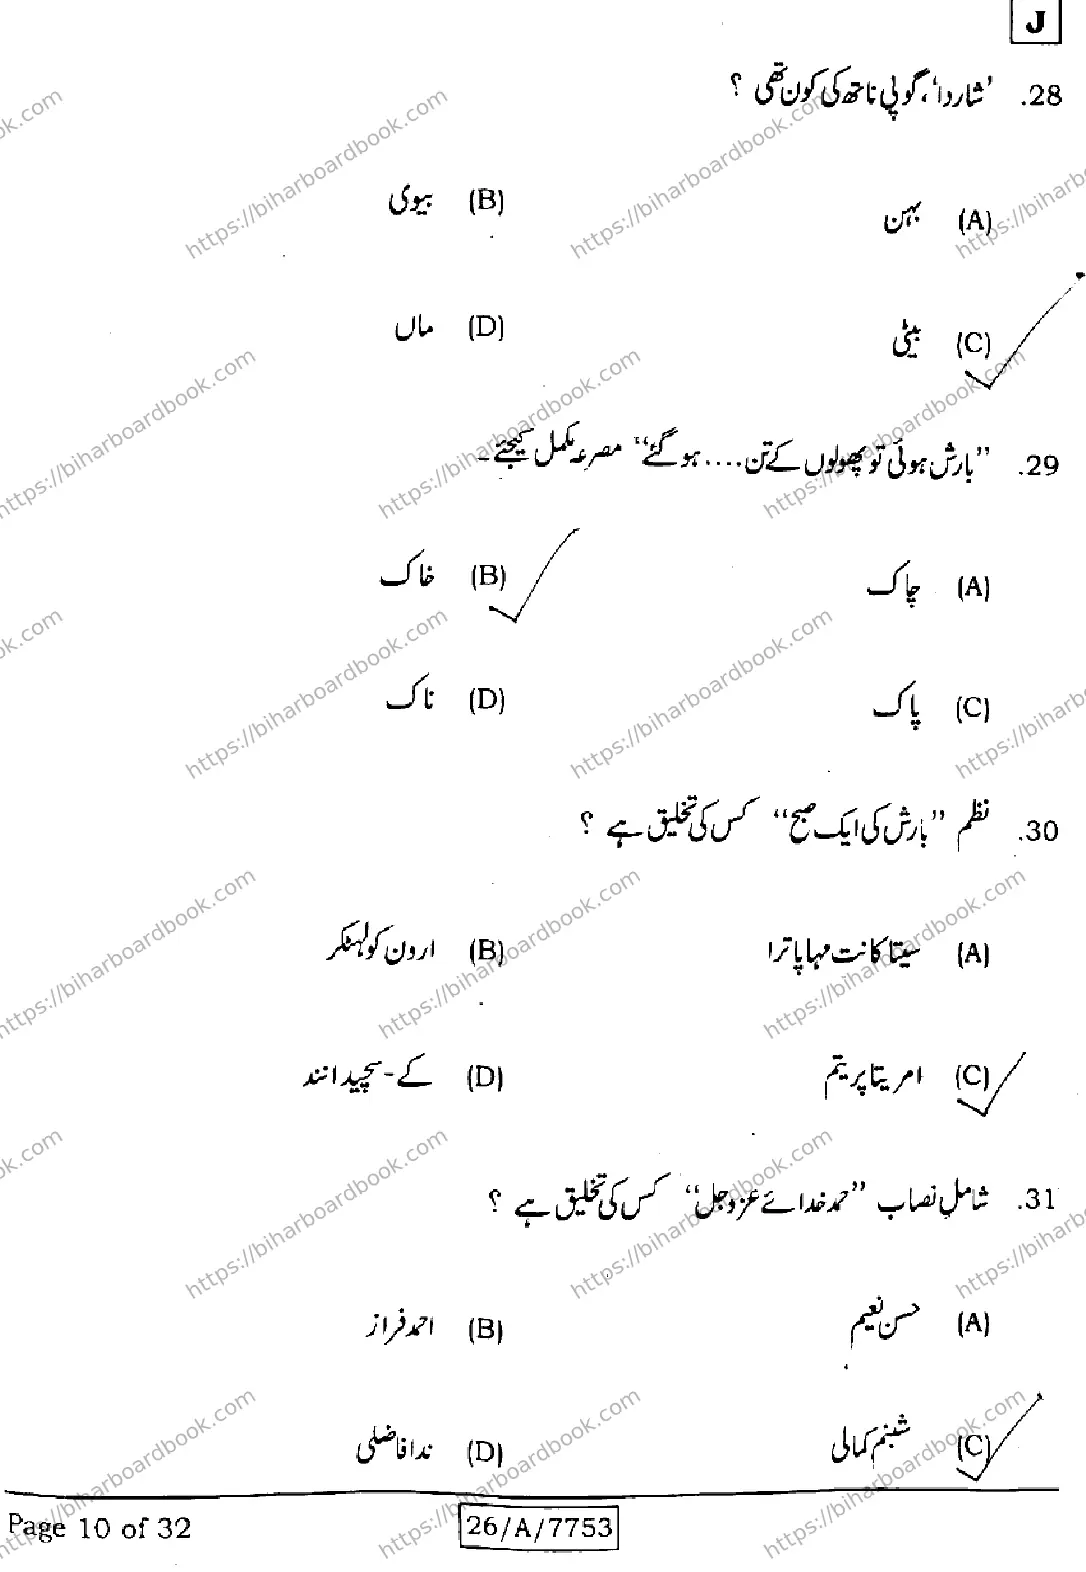 J
28. 'شاردا'، گوپی ناتھ کی کون تھی ؟
(A) بہن (B) بیوی
(C) بیٹی (D) ماں
29. "بارش ہوئی تو پھولوں کے تن .... ہو گئے" مصرعہ مکمل کیجئے -
(A) چاک (B) خاک
(C) پاک (D) ناک
30. نظم "بارش کی ایک صبح" کس کی تخلیق ہے ؟
(A) سیتا کانت مہاپاترا (B) ارون کولہٹکر
(C) امریتا پریتم (D) کے - سچیدانند
31. شامل نصاب "حمد خدائے عزوجل" کس کی تخلیق ہے ؟
(A) حسن نعیم (B) احمد فراز
(C) شبنم کمالی (D) ندا فاضلی
Page 10 of 32
26/A/7753
https://biharboardbook.com